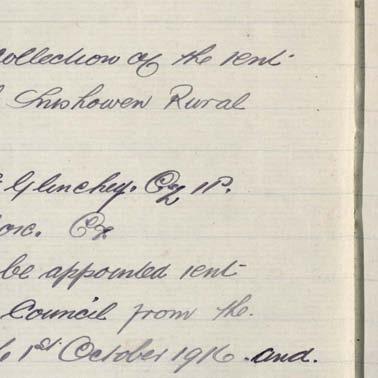 collection of the rent
Inishowen Rural
Glinchey. Co JP.
Co
be appointed rent
Council from the
1st October 1916. and.